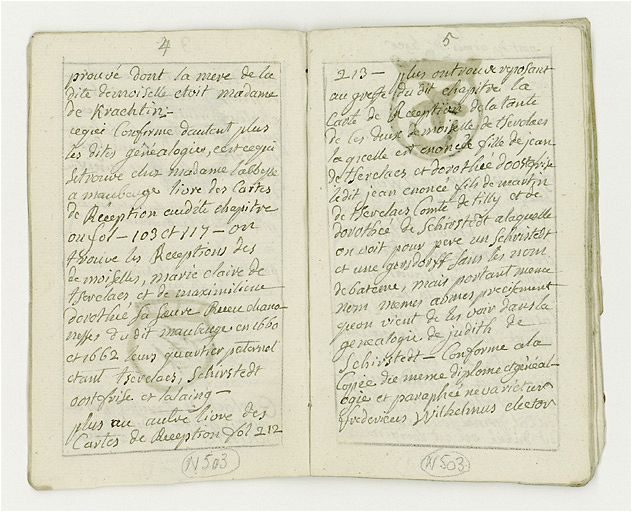 4
prouvé dont la mere de la
dite demoiselle etoit madame
de Krachtin -
ce qui Conforme dautent plus
les dites génealogies, c'est ce qui
se trouve chez madame l'abbesse
a maubeuge livre des Cartes
de Réception audit chapitre
ou fol - 103 et 117 - on
trouve les Réceptions des
demoiselles, marie claire de
tserclaes et de maximiliene
dorothée sa soeure Reçeue chano-
nesses du dit maubeuge en 1660
et 1662 leurs quartier paternel
etant tserclaes, Schirstedt
oostfrise et lalaing -
plus au autre livre des
Cartes de Reception fol 212
N 503
5
213 - plus on trouve reposant
au greffe du dit chapitre la
Carte de Réception de la tante
de les deux demoiselle de tserclaes
laquelle est enoncée fille de jean
de tserclaes et dorothée d'oostfrise
ledit jean enoncé fils de martin
de tserclaes Comte de tilly et de
dorothée de Schirstedt a laquelle
on voit pour pere un Schirstedt
et une gersdorff sans les nom
de bateme, mais portant meme
nom memes armes precisement
qu'on vient de les voir dans la
genealogie de judith de
Schirstedt - Conforme a la
Copie de meme diplome généal-
ogie et paraphée ne varietur
fredericus Wilhelmus elector
N 503